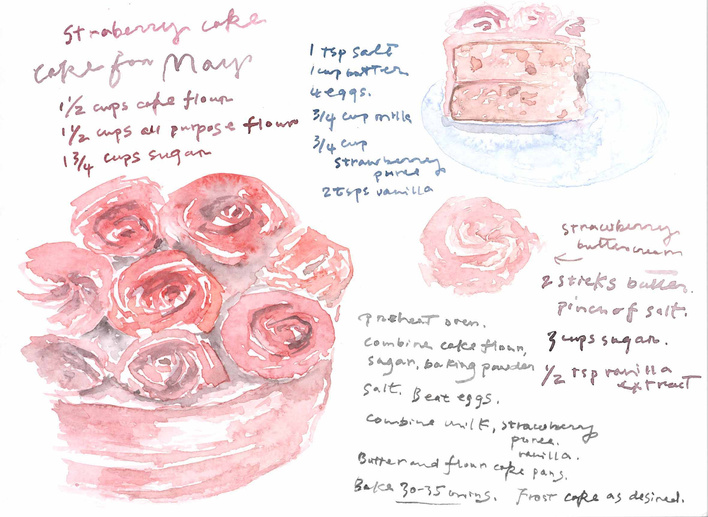 Straberry cake
cake for May
1 1/2 cups cake flour
1 1/2 cups all purpose flour
1 3/4 cups sugar
1 tsp salt
1 cup butter
4 eggs.
3/4 cup milk
3/4 cup
strawberry
puree
2 tsps vanilla
strawberry
buttercream
2 sticks butter.
pinch of salt.
3 cups sugar.
1/2 tsp vanilla
extract
preheat oven.
combine cake flour,
sugar, baking powder
salt. Beat eggs.
combine milk, strawberry
puree.
vanilla.
Butter and flour cake pans.
Bake 30-35 mins. Frost cake as desired.